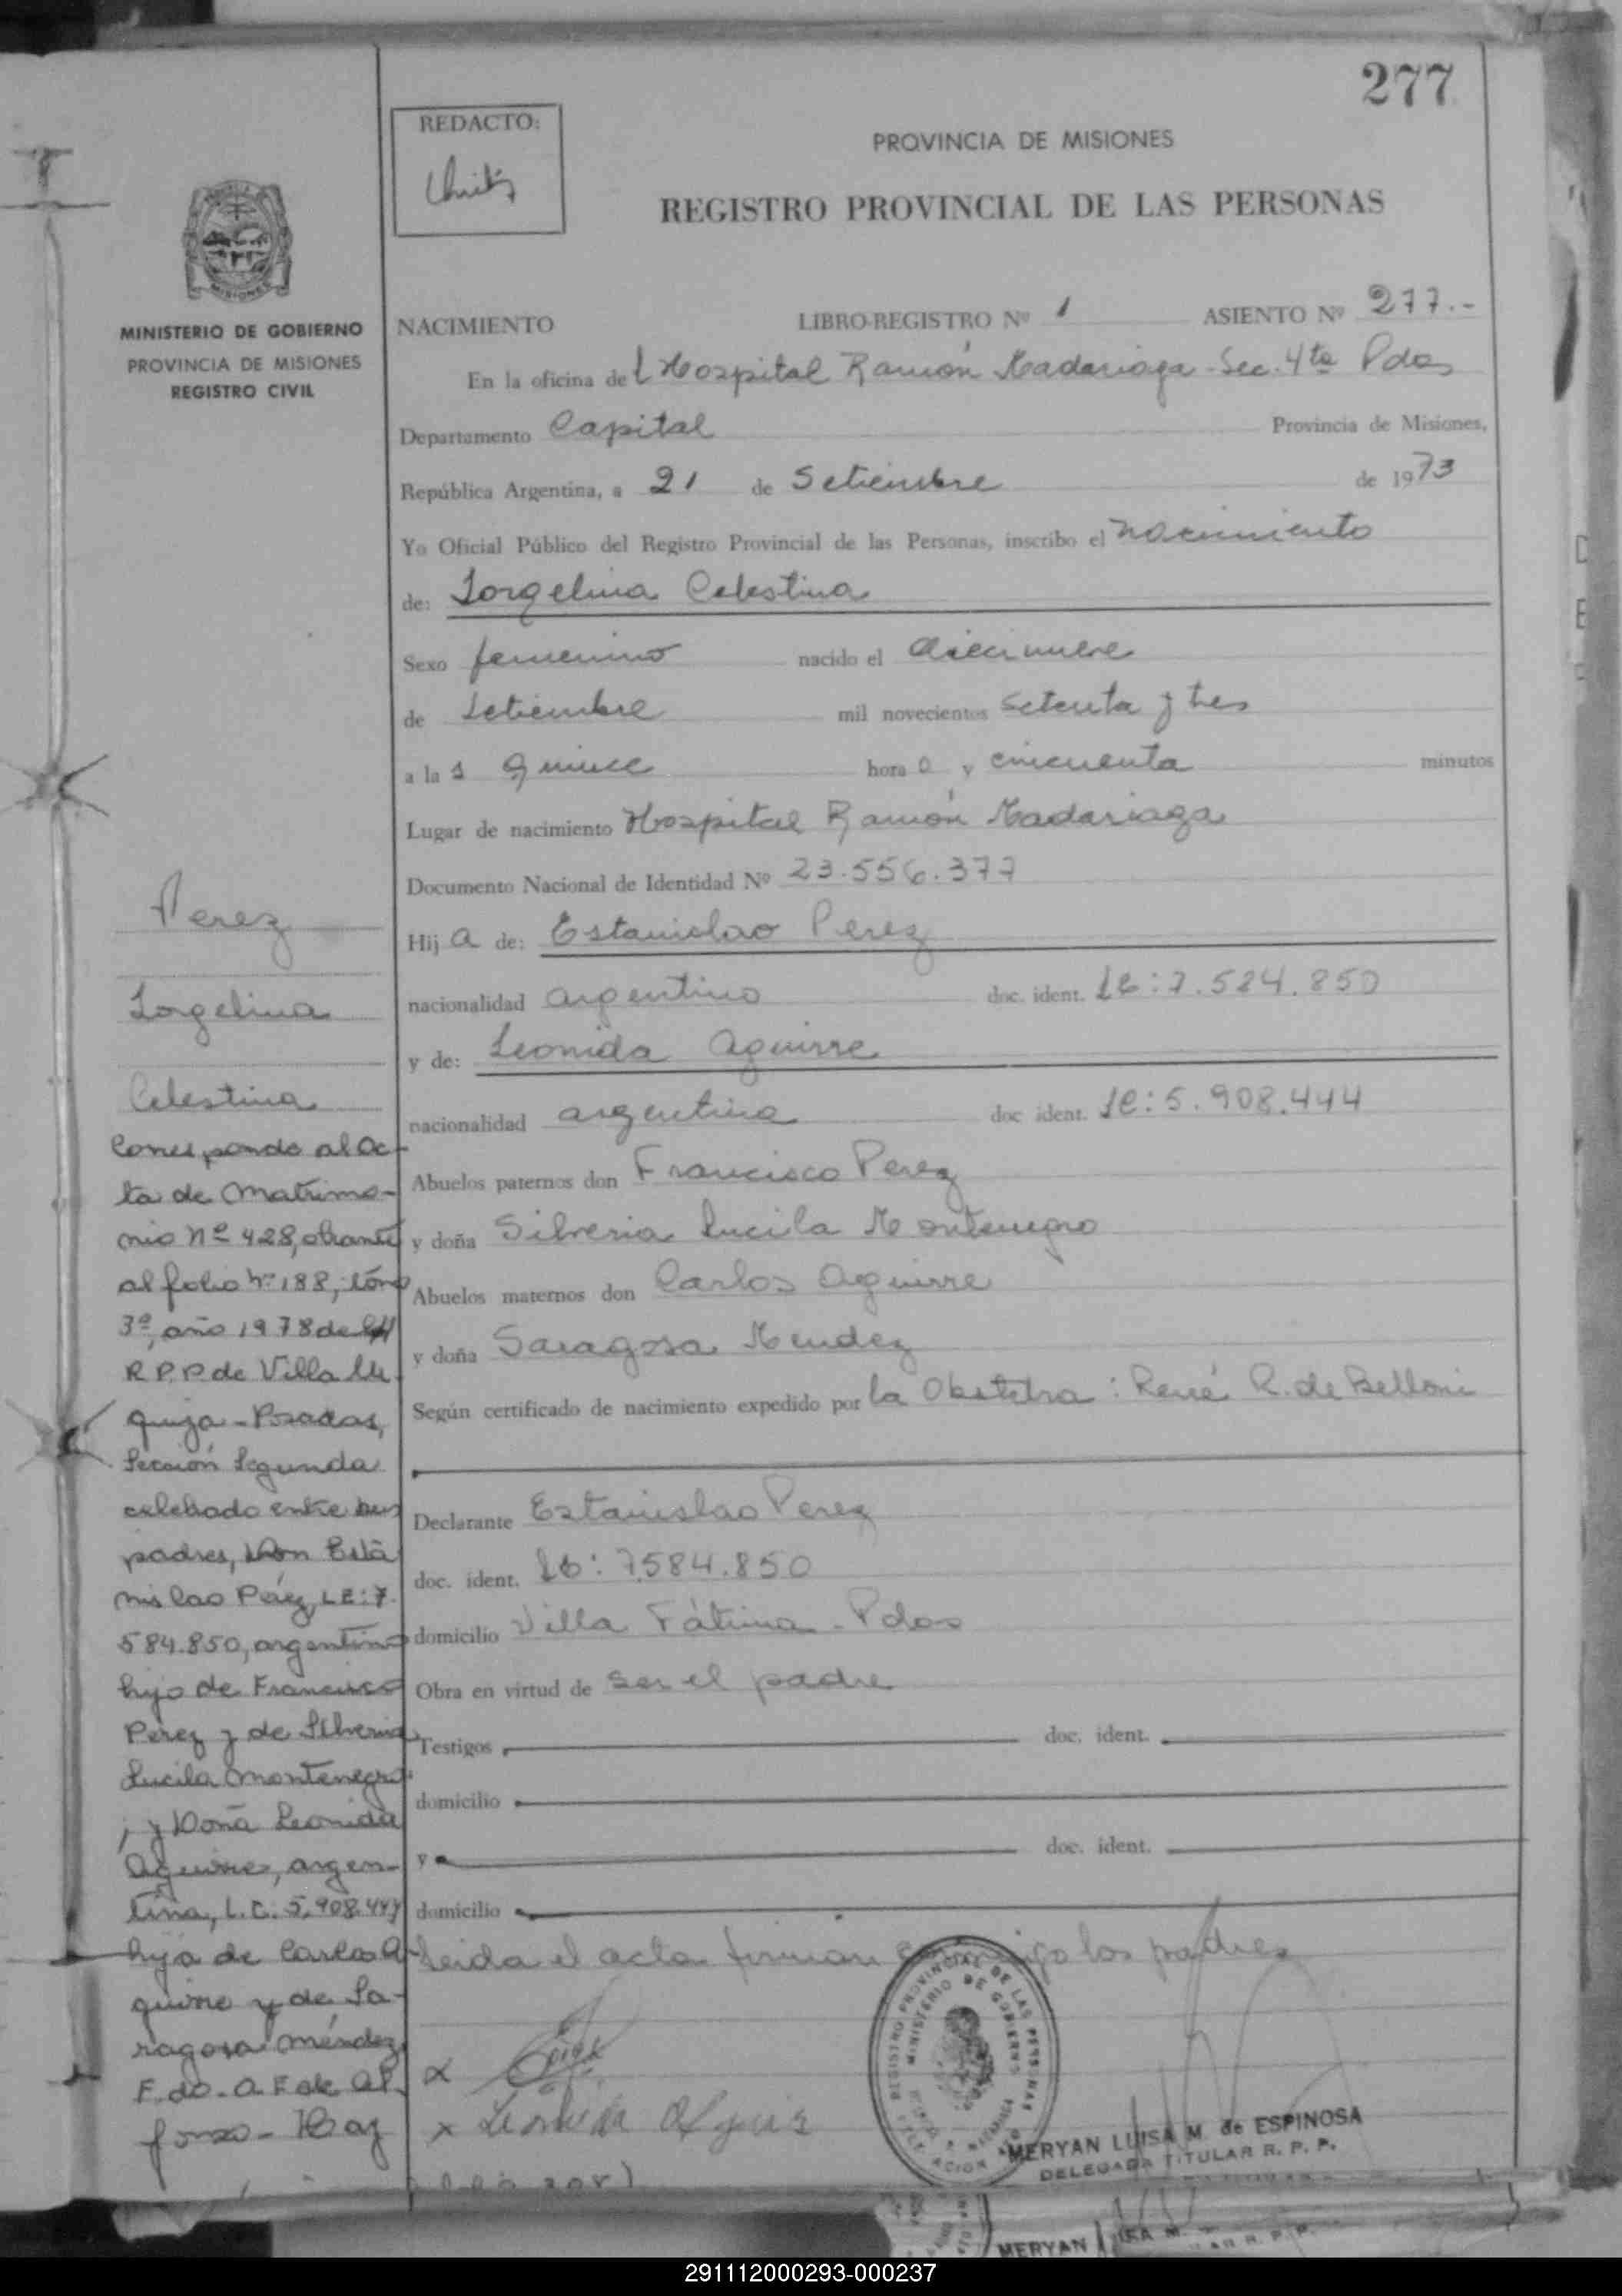 277
REDACTO:
PROVINCIA DE MISIONES
REGISTRO PROVINCIAL DE LAS PERSONAS
MISIONES
MINISTERIO DE GOBIERNO
PROVINCIA DE MISIONES
REGISTRO CIVIL
NACIMIENTO LIBRO-REGISTRO Nº 1 ASIENTO Nº 277.-
En la oficina del Hospital Ramón Madariaga - Sec. 4ta Pdas
Departamento Capital Provincia de Misiones,
República Argentina, a 21 de Setiembre de 1973
Yo Oficial Público del Registro Provincial de las Personas, inscribo el nacimiento
de: Jorgelina Celestina
Sexo femenino nacido el diecinueve
de Setiembre mil novecientos setenta y tres
a las quince hora a y cincuenta minutos
Lugar de nacimiento Hospital Ramón Madariaga
Documento Nacional de Identidad Nº 23.556.377
Hija de: Estanislao Perez
nacionalidad argentino doc. ident. LE: 7.584.850
y de: Leonida Aguirre
nacionalidad argentina doc ident. LC: 5.908.444
Abuelos paternos don Francisco Perez
y doña Silveria Lucila Montenegro
Abuelos maternos don Carlos Aguirre
y doña Saragosa Mendez
Según certificado de nacimiento expedido por la Obstetra: René R. de Belloni
Declarante Estanislao Perez
doc. ident. LE: 7.584.850
domicilio Villa Fátima - Pdas
Obra en virtud de ser el padre
Testigos doc. ident.
domicilio
y doc. ident.
domicilio
Leida el acta firman conmigo los padres
x
x Leonida Aguir
REGISTRO PROVINCIAL DE LAS PERSONAS
MINISTERIO DE GOBIERNO
MERYAN LUISA M. de ESPINOSA
DELEGADA TITULAR R. P. P.
Perez
Jorgelina
Celestina
Corresponde al Ac-
ta de Matrimo-
nio nº 428, obrante
al folio nº 188, tomo
3º, año 1978 del
R.P.P. de Villa Ur
quiza - Posadas,
Sección Segunda
celebrado entre sus
padres, Don Esta
nislao Pérez, LE: 7.
584.850, argentino
hijo de Francisco
Pérez y de Silveria
Lucila Montenegro
; y Doña Leonida
Aguirre, argen-
tina, L.C. 5.908.444
hija de Carlos A-
guirre y de Sa-
ragosa Méndez
F.do. A. F. de Al-
fonso -
MERYAN
291112000293-000237